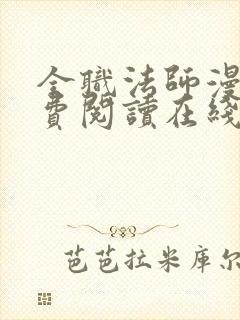 全職法師漫
費閱讀在綫
芭芭拉米庫尔